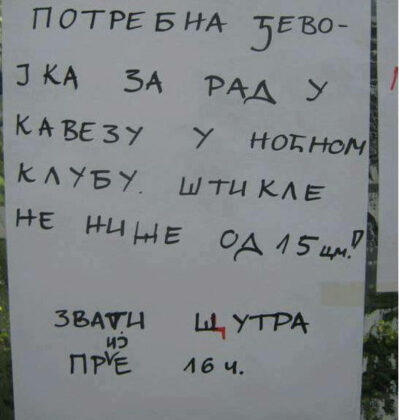 ПОТРЕБНА ЂЕВО-
ЈКА ЗА РАД У
КАВЕЗУ У НОЋНОМ
КЛУБУ. ШТИКЛЕ
НЕ НИЖЕ ОД 15 цм.!
ЗВАТИ ЩУТРА
ПРЕ 16 ч.